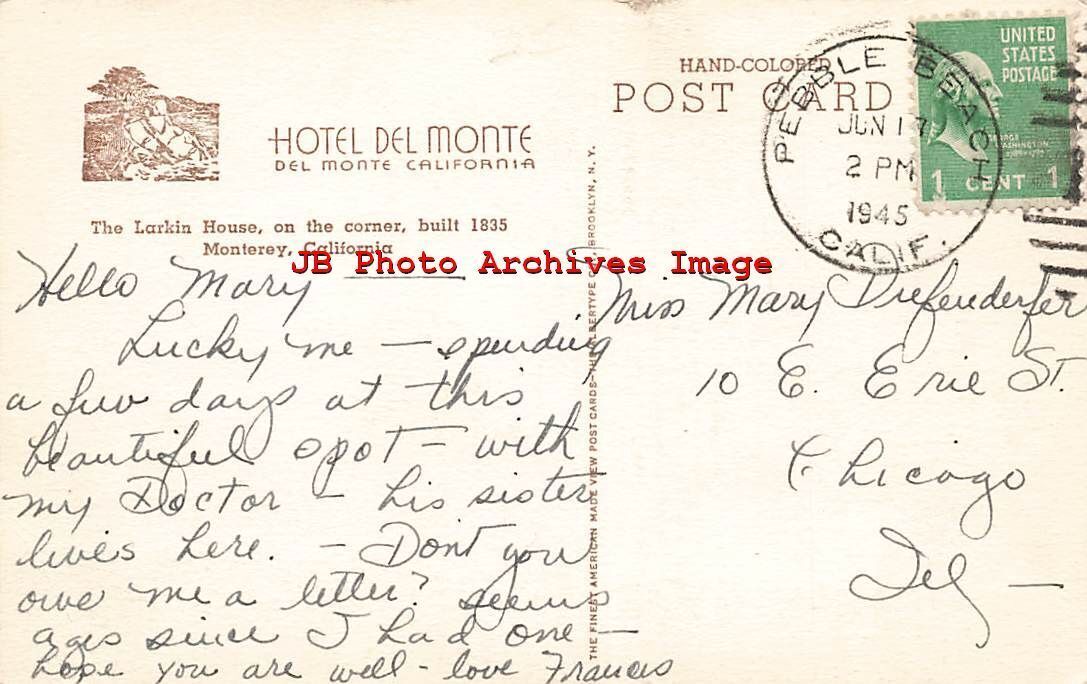 HOTEL DEL MONTE
DEL MONTE CALIFORNIA
The Larkin House, on the corner, built 1835
Monterey, California
HAND-COLORED
POST CARD
PEBBLE BEACH
JUN 14
2 PM
1945
CALIF.
UNITED
STATES
POSTAGE
GEORGE
WASHINGTON
1 CENT 1
JB Photo Archives Image
Hello Mary
Lucky me — spending
a few days at this
beautiful spot — with
my Doctor — his sister
lives here. — Dont you
owe me a letter? seems
ages since I had one —
hope you are well - love Frances
THE FINEST AMERICAN MADE VIEW POST CARDS—THE ALBERTYPE CO., BROOKLYN, N. Y.
Miss Mary Diefenderfer
10 E. Erie St.
Chicago
Ill —